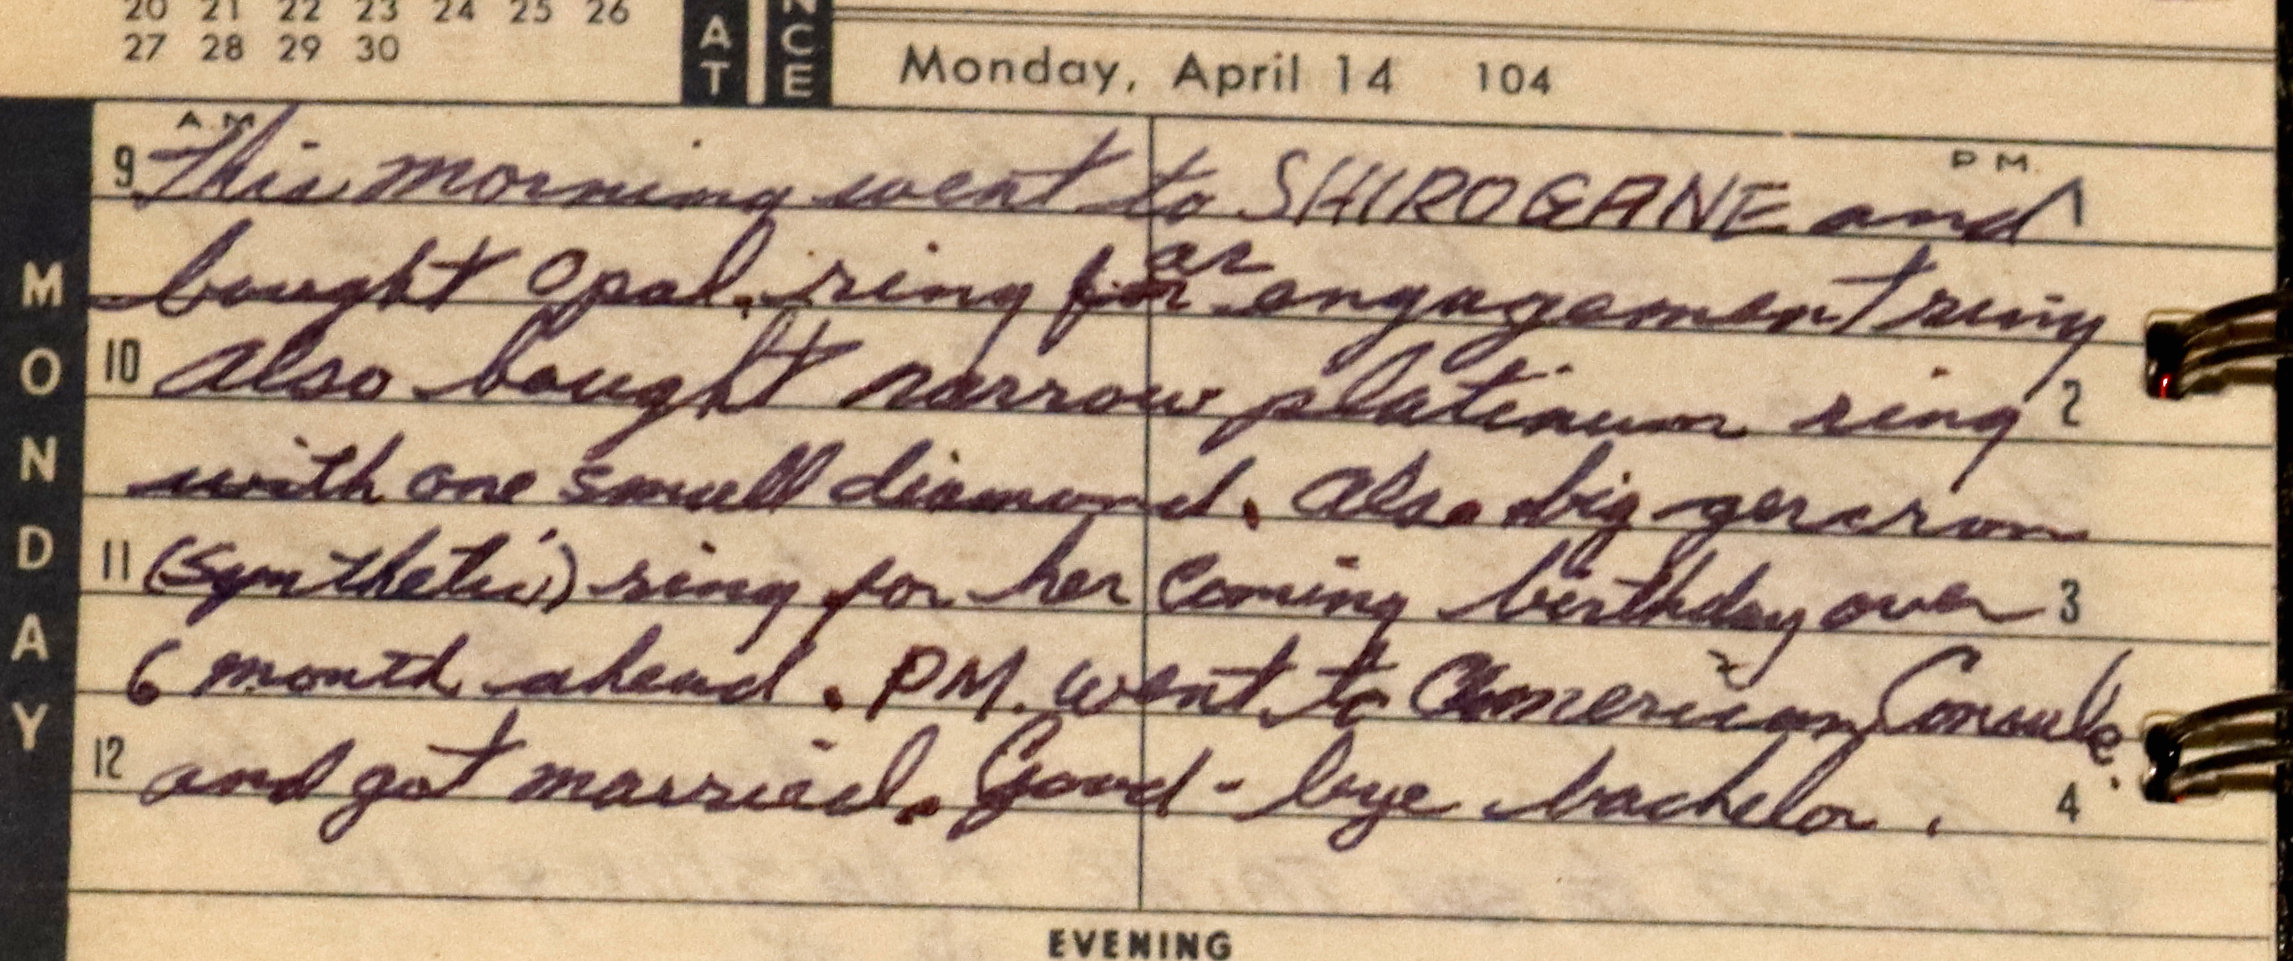 20 21 22 23 24 25 26
27 28 29 30
AT
NCE
Monday, April 14 104
MONDAY
A.M.
P.M.
9 This morning went to SHIROGANE and 1
bought Opal. ring for as engagement ring
10 also bought narrow platinum ring 2
with one small diamond. Also big
11 (synthetic) ring for her coming birthday over 3
6 month ahead. PM. went to American Consule
12 and got married. Good-bye bachelor. 4
EVENING